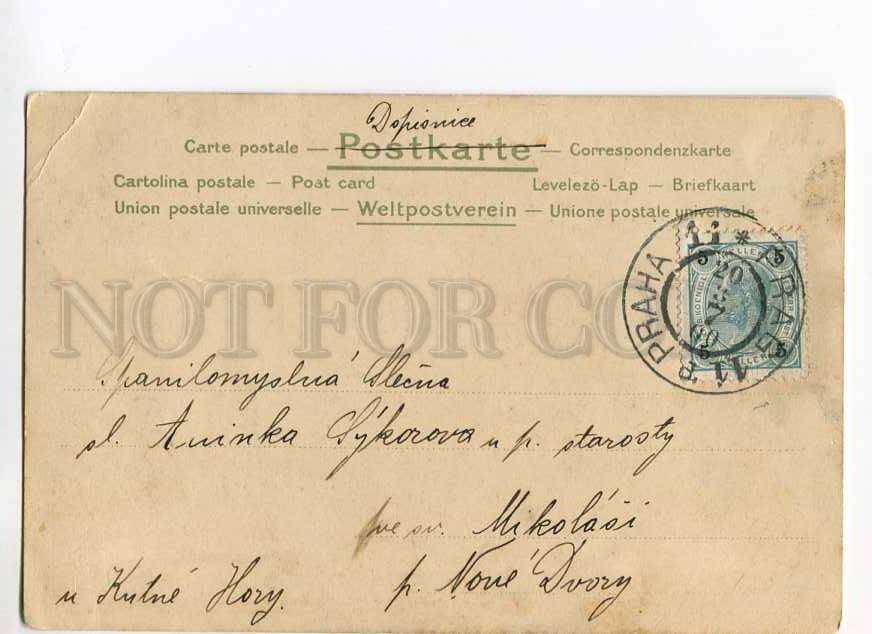 Dopisnice
Carte postale — Postkarte — Correspondenzkarte
Cartolina postale — Post card Levelező-Lap — Briefkaart
Union postale universelle — Weltpostverein — Unione postale universale
PRAHA 11 * PRAG 11
5 5
20
00
5 5
NOT FOR
Spanilomyslná Slečna
sl. Aninka Sýkorova u p. starosty
ve sv. Mikoláši
u Kutné Hory. p. Nové Dvory